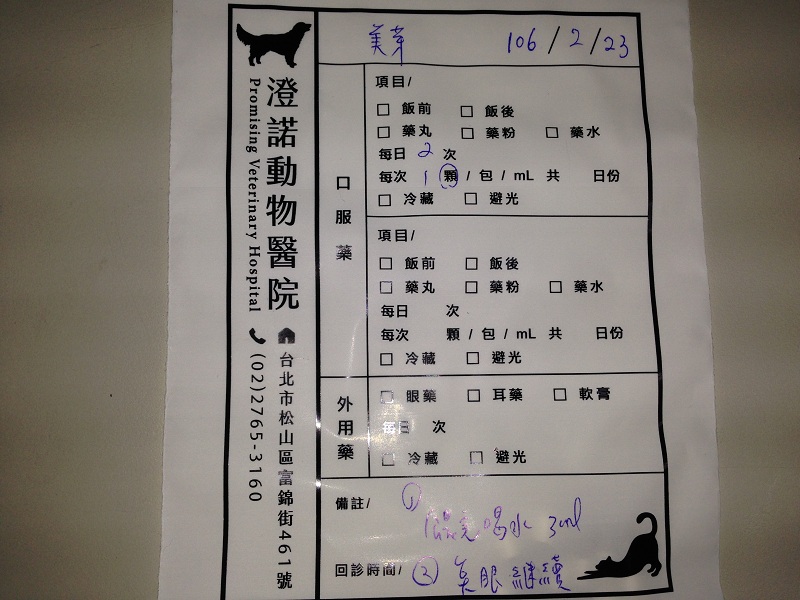 澄諾動物醫院
Promising Veterinary Hospital
台北市松山區富錦街461號
(02)2765-3160
美芽 106/2/23
口服藥
項目/
□ 飯前 □ 飯後
□ 藥丸 □ 藥粉 □ 藥水
每日 2 次
每次 1 顆 / 包 / mL 共 日份
□ 冷藏 □ 避光
項目/
□ 飯前 □ 飯後
□ 藥丸 □ 藥粉 □ 藥水
每日 次
每次 顆 / 包 / mL 共 日份
□ 冷藏 □ 避光
外用藥
□ 眼藥 □ 耳藥 □ 軟膏
每日 次
□ 冷藏 □ 避光
備註/ ①
喝水 3ml
回診時間/ ② 眼繼續